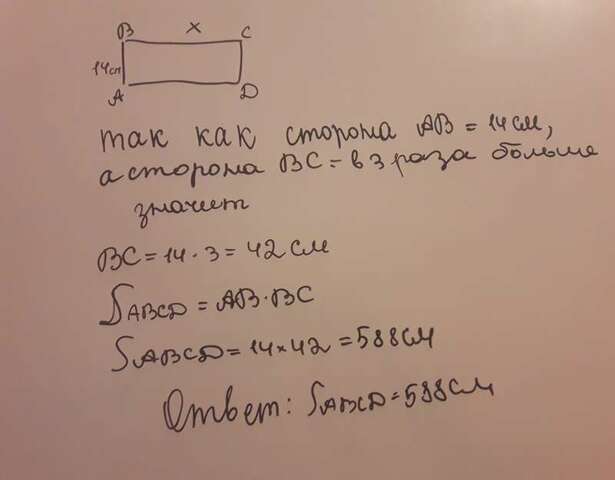 B x C
14см
A D
так как сторона AB = 14 см,
а сторона BC = в 3 раза больше
значит
BC = 14 · 3 = 42 см
SABCD = AB · BC
SABCD = 14 × 42 = 588 см
Ответ: SABCD = 588 см